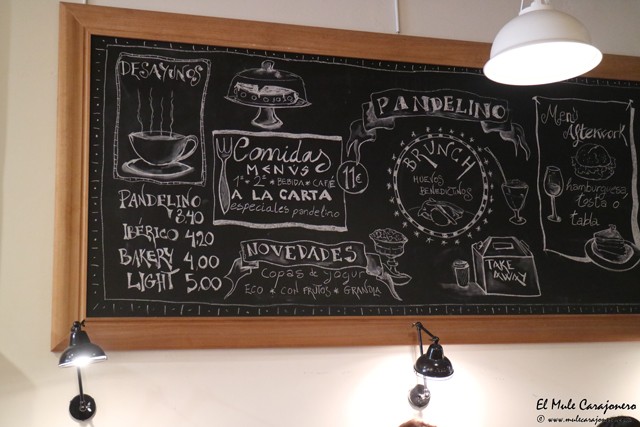 DESAYUNOS
PANDELINO
3,40
IBÉRICO 4,20
BAKERY 4,00
LIGHT 5,00
Comidas
MENÚS
1º * 2º * BEBIDA * CAFÉ
A LA CARTA
especiales pandelino
11€
NOVEDADES
Copas de yogur
ECO * CON FRUTOS * GRANOLA
PANDELINO
BRUNCH
HUEVOS
BENEDICTINOS
TAKE
AWAY
Menú
Afterwork
hamburguesa
tosta o
tabla
El Mule Carajonero